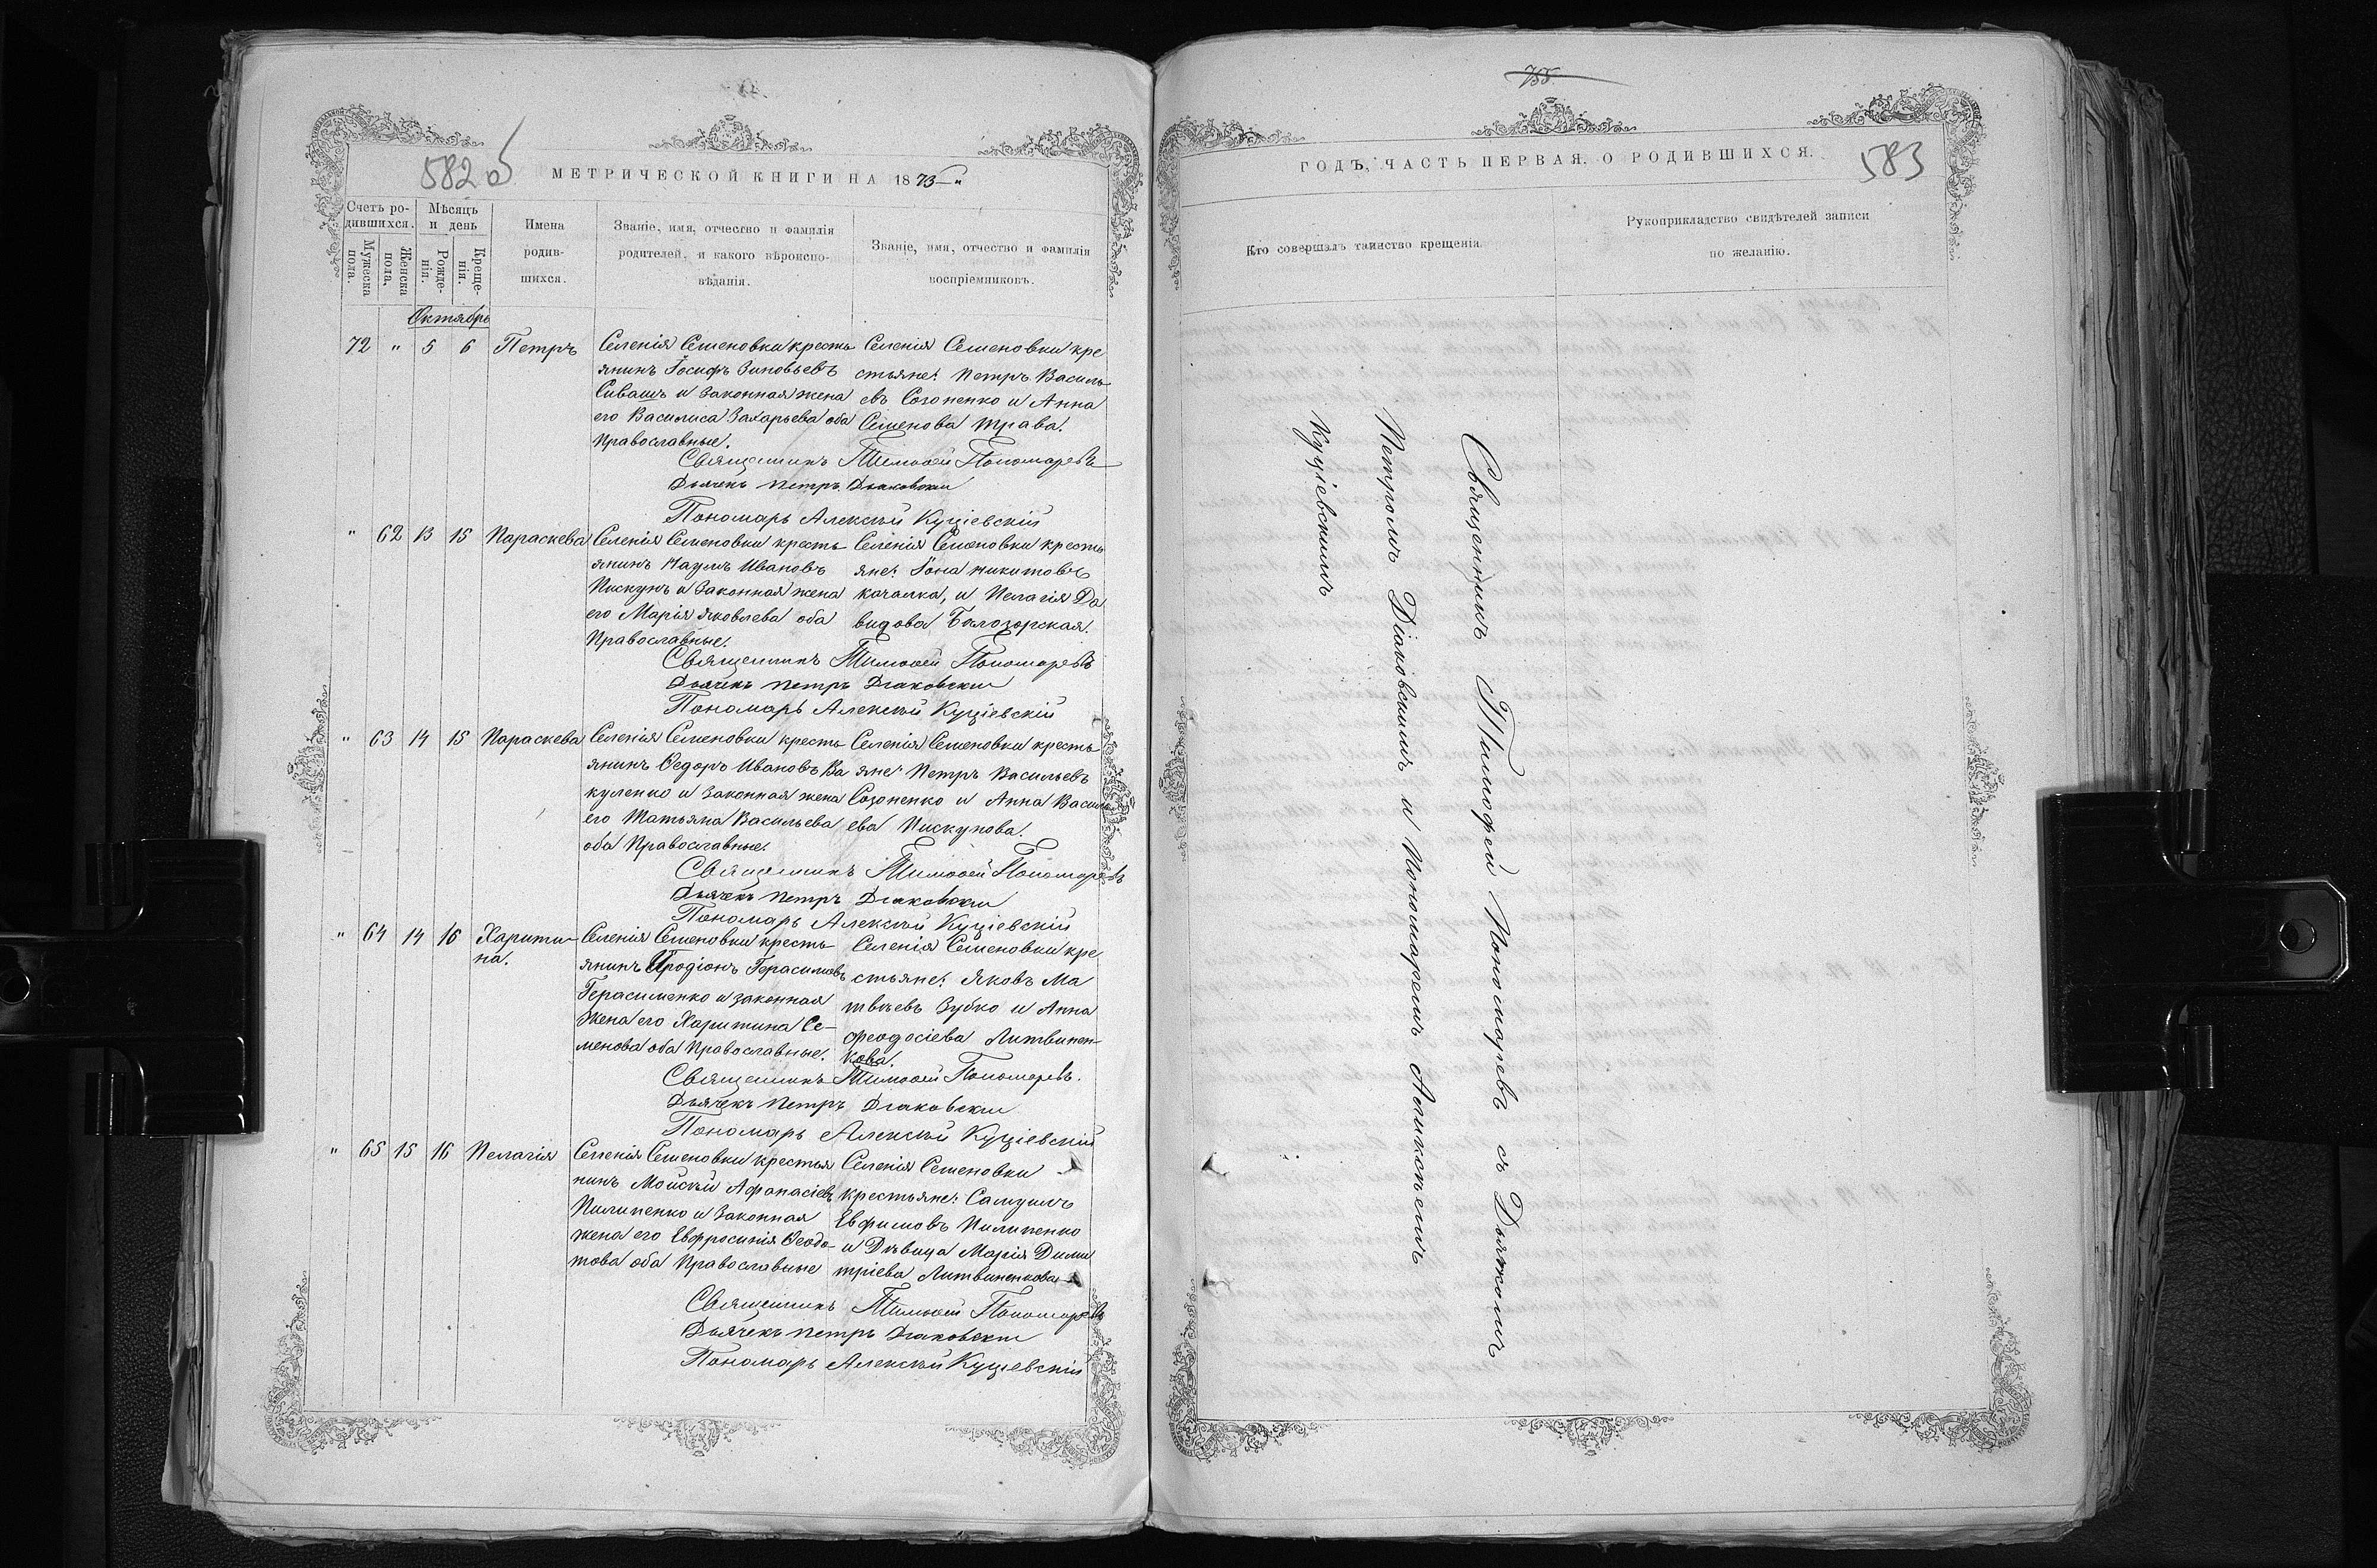 582 об
МЕТРИЧЕСКОЙ КНИГИ НА 1875
Счетъ ро-
дившихся.
Мужеска пола.
Женска пола.
Мѣсяцъ
и день
Рожде-
нія.
Креще-
нія.
Имена
родив-
шихся.
Званіе, имя, отчество и фамилія
родителей, и какого вѣроиспо-
вѣданія.
Званіе, имя, отчество и фамилія
воспріемниковъ.
Октябрь
72 " 5 6 Петръ
Селенія Семеновки кресть
янинъ Іосифъ Зиновьевъ
Сивашъ и законная жена
его Василиса Захарьева оба
православные.
Селенія Семеновки кре
стьяне: Петръ Василь
евъ Созоненко и Анна
Семенова Трава.
Священникъ Тимоѳей Пономаревъ
Дьячекъ Петръ Дiаковскiй
Пономарь Алексѣй Куціевскій
" 62 13 15 Параскева
Селенія Семеновки кресть
янинъ Наумъ Ивановъ
Пискунъ и законная жена
его Марія Яковлева оба
православные.
Селенія Семеновки кресть
яне: Іона Никитовъ
Качалка, и Пелагія Да
видова Бѣлозорская.
Священникъ Тимоѳей Пономаревъ
Дьячекъ Петръ Дiаковскiй
Пономарь Алексѣй Куціевскій
" 63 14 15 Параскева
Селенія Семеновки кресть
янинъ Ѳедоръ Ивановъ Ва
куленко и законная жена
его Татьяна Васильева
оба православные.
Селенія Семеновки кресть
яне: Петръ Васильевъ
Созоненко и Анна Василь
ева Пискунова.
Священникъ Тимоѳей Пономаревъ
Дьячекъ Петръ Дiаковскiй
Пономарь Алексѣй Куціевскій
" 64 14 16 Харити-
на.
Селенія Семеновки кресть
янинъ Иродіонъ Герасимовъ
Герасименко и законная
жена его Харитина Се-
менова оба православные.
Селенія Семеновки кре
стьяне: Яковъ Ма
твѣевъ Зубко и Анна
Феодосіева Литвинен-
кова.
Священникъ Тимоѳей Пономаревъ.
Дьячекъ Петръ Дiаковскiй
Пономарь Алексѣй Куціевскій
" 65 15 16 Пелагія
Селенія Семеновки крестья
нинъ Мойсѣй Афанасіевъ
Пилипенко и законная
жена его Евфросинія Ѳеодо-
това оба православные
Селенія Семеновки
крестьяне: Самуилъ
Евфимовъ Пилипенко
и Дѣвица Марія Дими
тріева Литвиненкова
Священникъ Тимоѳей Пономаревъ
Дьячекъ Петръ Дiаковскiй
Пономарь Алексѣй Куціевскій
755
ГОДЪ, ЧАСТЬ ПЕРВАЯ. О РОДИВШИХСЯ.
583
Кто совершалъ таинство крещенія.
Рукоприкладство свидѣтелей записи
по желанію.
Священникъ Тимофей Пономаревъ съ Дьячкомъ
Петромъ Діаковскимъ и Пономаремъ Алексѣемъ
Куціевскимъ